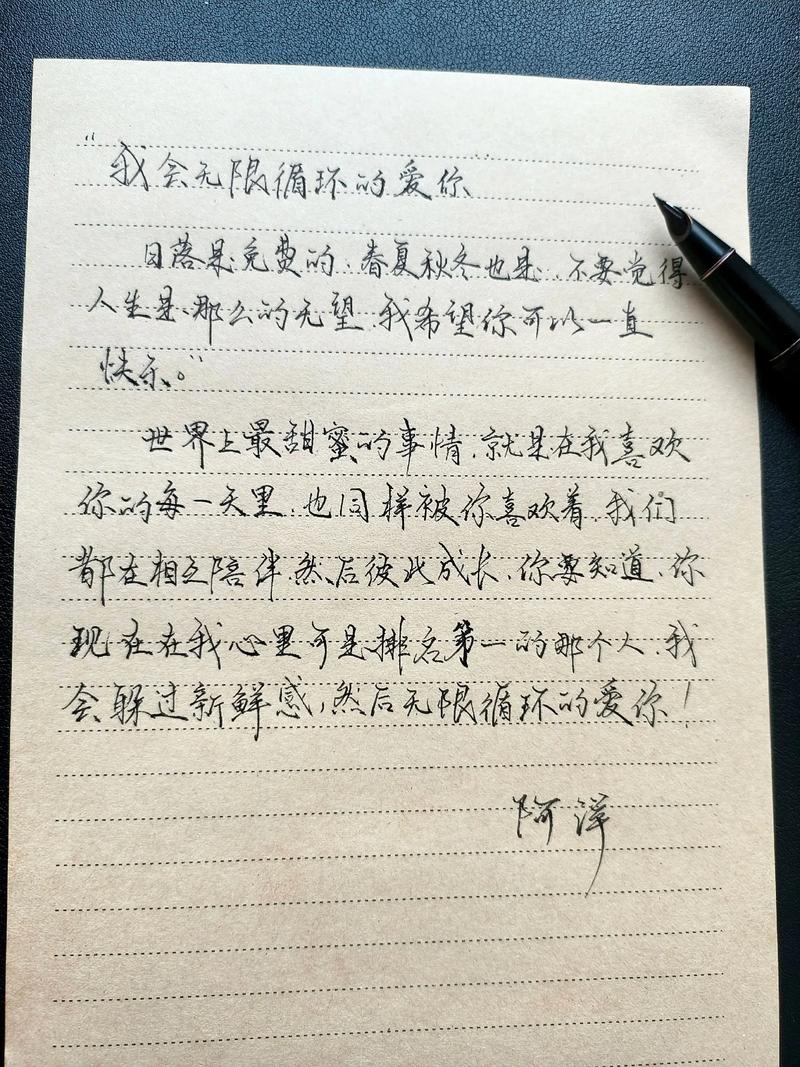 “
我会无限循环的爱你
日落是免费的.春夏秋冬也是.不要觉得
人生是那么的无望.我希望你可以一直
快乐。”
世界上最甜蜜的事情.就是在我喜欢
你的每一天里.也同样被你喜欢着.我们
都在相互陪伴.然后彼此成长.你要知道.你
现在在我心里可是排名第一的那个人.我
会躲过新鲜感,然后无限循环的爱你!
阿洋